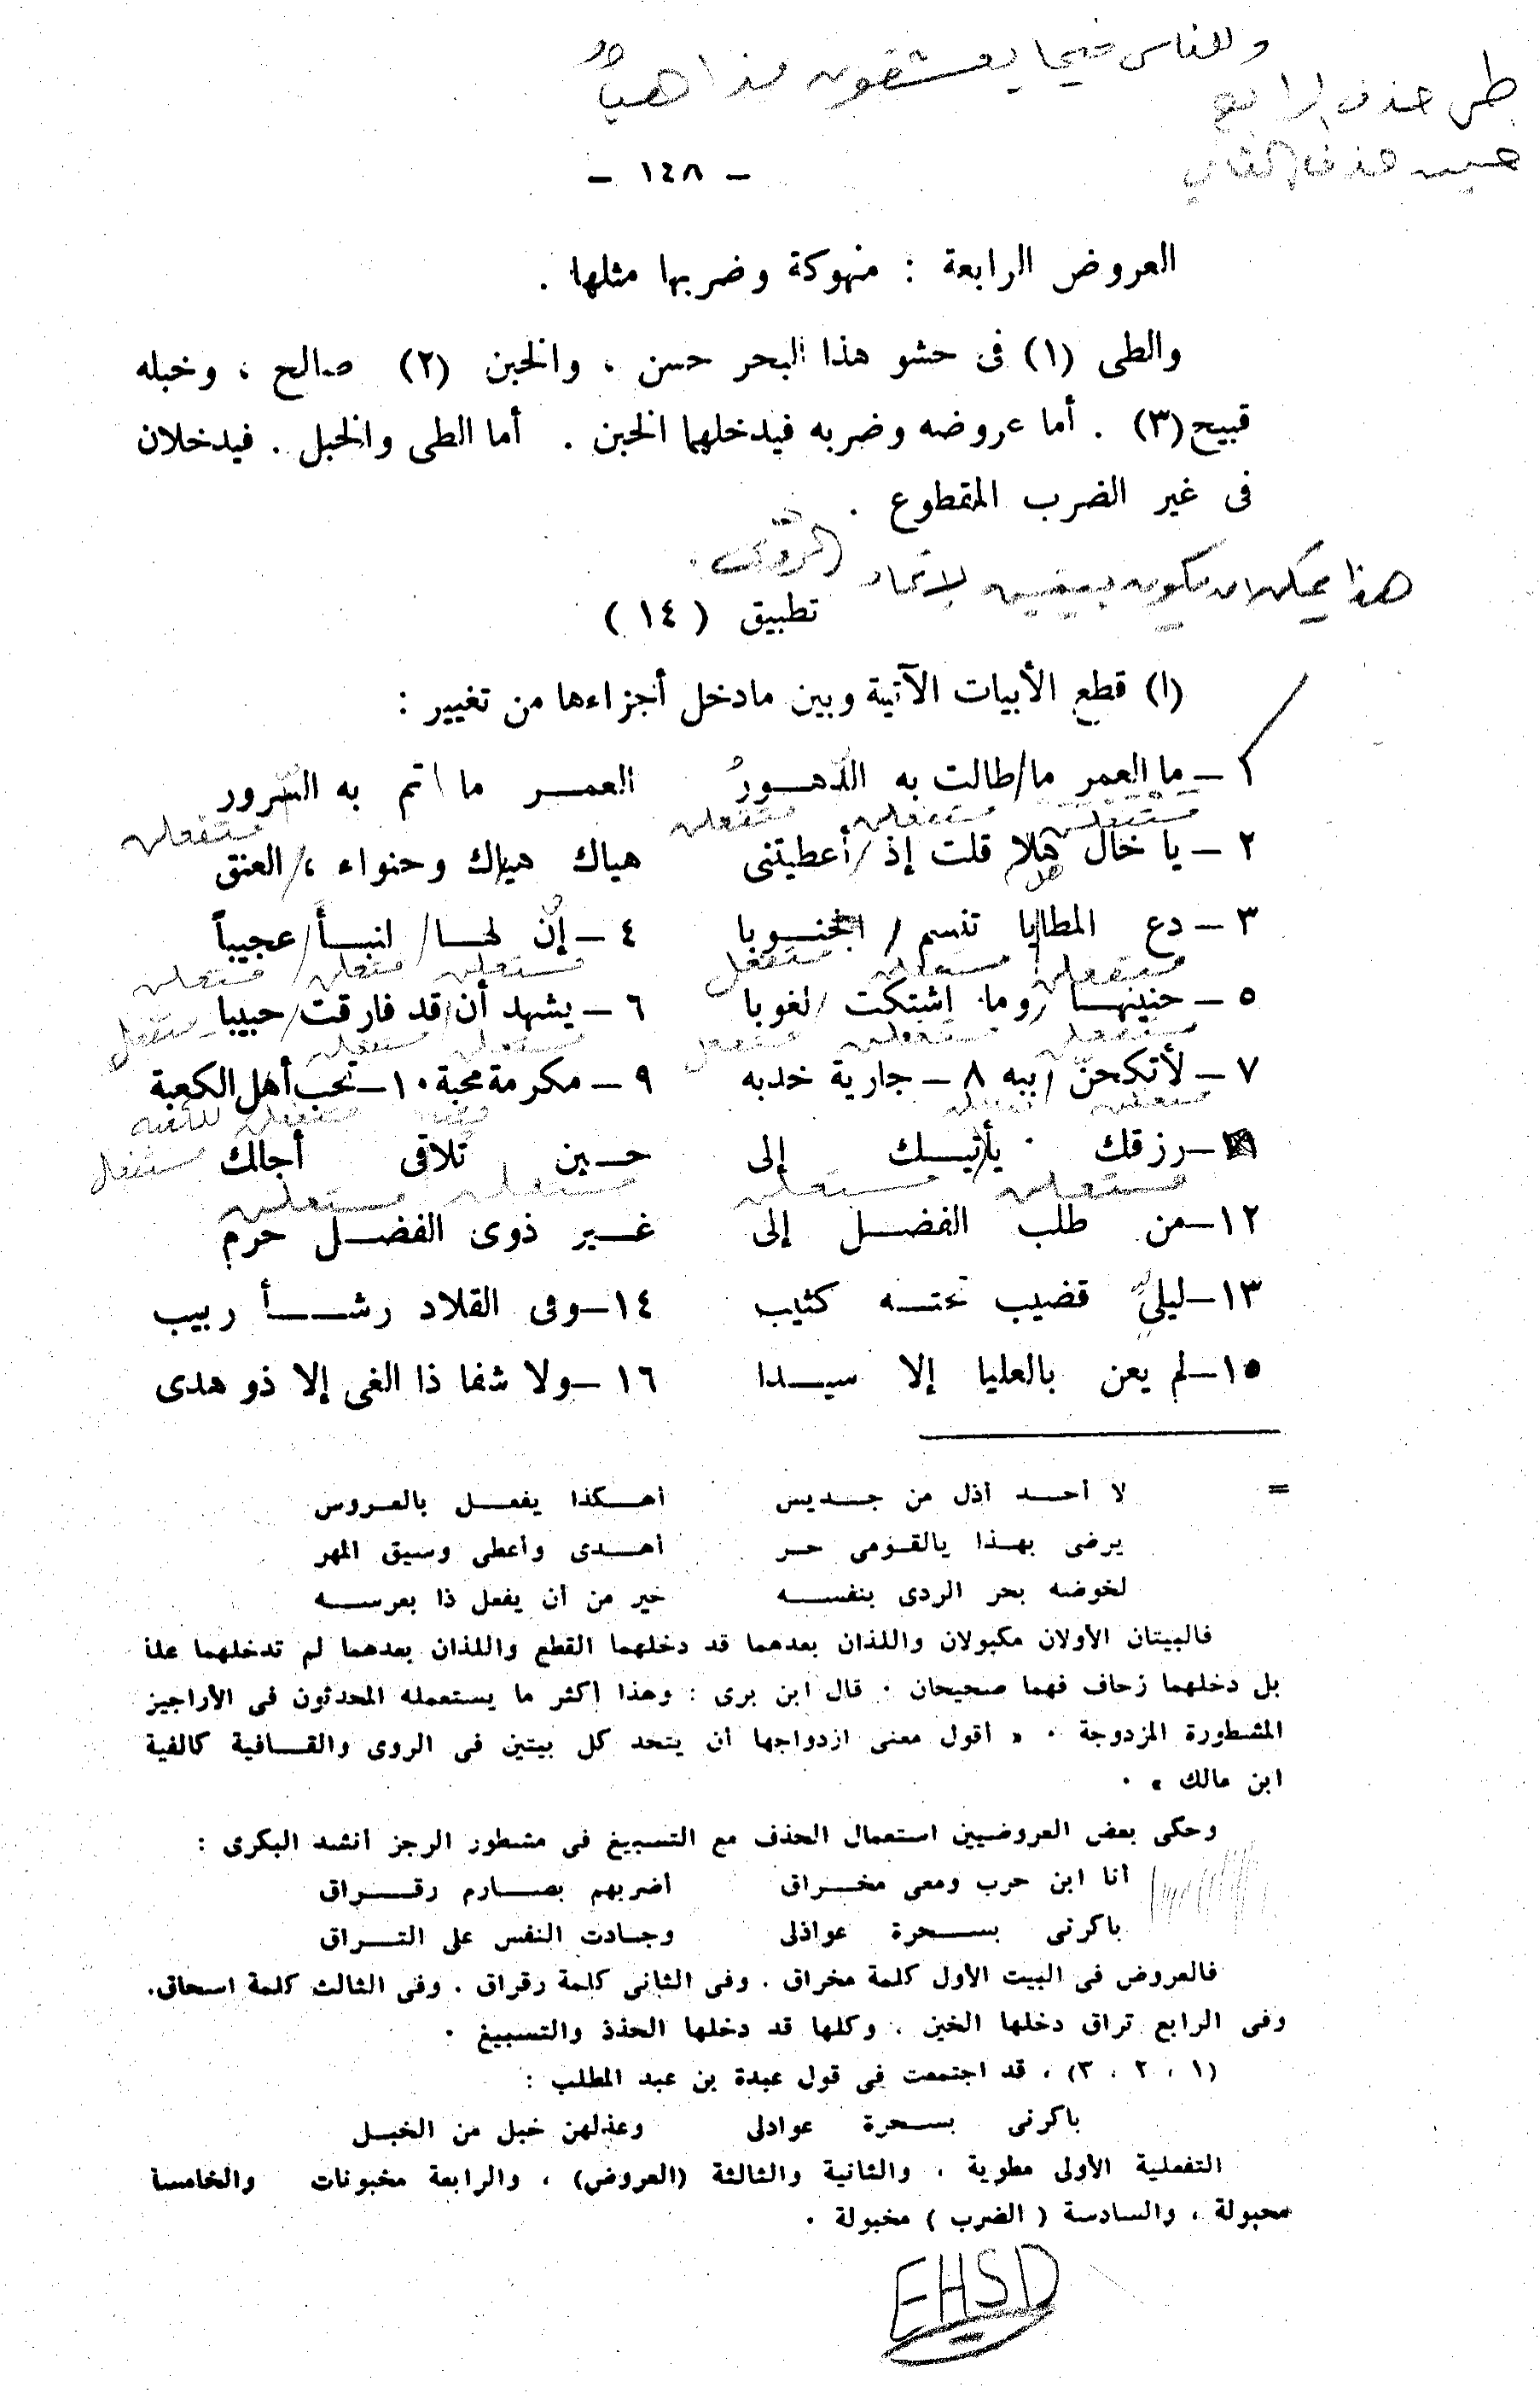 وللناس فيما يعشقون مذاهب
طي حذف الرابع
خبن حذف الثاني
— ١٤٨ —
العروض الرابعة : منهوكة وضربها مثلها .
والطى (١) فى حشو هذا البحر حسن ، والخبن (٢) صالح ، وخبله
قبيح (٣) . أما عروضه وضربه فيدخلهما الخبن . أما الطى والخبل . فيدخلان
فى غير الضرب المقطوع .
هذا يمكن ان يكون بيتين لاتحاد الروى .
تطبيق ( ١٤ )
(ا) قطع الأبيات الآتية وبين مادخل أجزاءها من تغيير :
١ — ما العمر ما/طالت به الدهـــورُ العمـــر ما تم به السرور
مستفعلن مستفعلن مستفعلن
٢ — يا خال هلا قلت إذ/أعطيتنى هياك هياك وحنواء ،/العنق
٣ — دع المطايا تنسم / الجنـــوبا ٤ — إن لهـــا/ لنبـــأ/عجيباً
متفعلن مستعلن مستفعل مستعلن متعلن
٥ — حنينهـــا /وما اشتكت /لغوبا ٦ — يشهد أن/قد فارقت/حبيبا
متفعلن متفعلن متفعل مستعلن مستفعلن متفعل
٧ — لأنكحنّ /ببه ٨ — جارية خدبه ٩ — مكرمة محبة ١٠ — تحب أهل الكعبة
١١ — رزقك يأتيـــك إلى حـــين تلاقى أجالك
مستعلن مستعلن مستعلن
١٢ — من طلب الفضـــل إلى غـــير ذوى الفضـــل حرم
١٣ — ليلى قضيب تحتـــه كثيب ١٤ — وفى القلاد رشـــأ ربيب
١٥ — لم يعن بالعليا إلا سيـــدا ١٦ — ولا شفا ذا الغى إلا ذو هدى
= لا أحـــد أذل من جـــديس أهـــكذا يفعـــل بالعـروس
يرضى بهـــذا يالقـومى حـــر أهـــدى وأعطى وسيق المهر
لخوضه بحر الردى بنفســـه خير من أن يفعل ذا بعرســـه
فالبيتان الأولان مكبولان واللذان بعدهما قد دخلهما القطع واللذان بعدهما لم تدخلهما علة
بل دخلهما زحاف فهما صحيحان . قال ابن برى : وهذا أكثر ما يستعمله المحدثون فى الأراجيز
المشطورة المزدوجة . « أقول معنى ازدواجها أن يتحد كل بيتين فى الروى والقـــافية كالفية
ابن مالك » .
وحكى بعض العروضيين استعمال الحذف مع التسبيغ فى مشطور الرجز أنشد البكرى :
أنا ابن حرب ومعى مخـــراق أضربهم بصـــارم رقـــراق
باكرنى بســـحرة عواذلى وجـــادت النفس على التـــراق
فالعروض فى البيت الأول كلمة مخراق . وفى الثانى كلمة رقراق . وفى الثالث كلمة اسحاق .
وفى الرابع تراق دخلها الخبن . وكلها قد دخلها الحذذ والتسبيغ .
(١ ، ٢ ، ٣) ، قد اجتمعت فى قول عبدة بن عبد المطلب :
باكرنى بســـحرة عوادلى وعذلهن خبل من الخبـــل
التفعلية الأولى مطوية ، والثانية والثالثة (العروض) ، والرابعة مخبونات والخامسة
محبولة ، والسادسة ( الضرب ) مخبولة .
EHSD